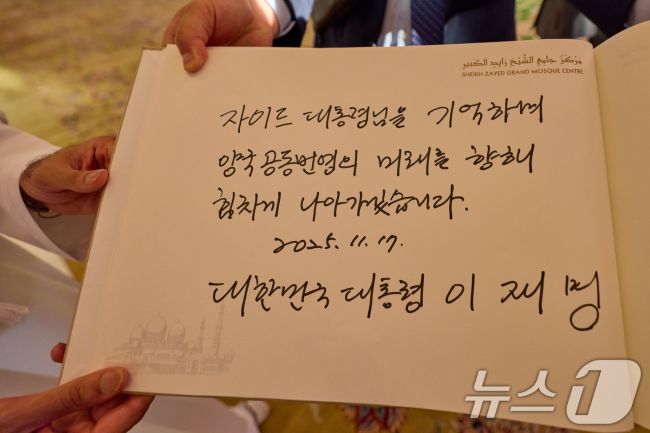 مركز جامع الشيخ زايد الكبير
SHEIKH ZAYED GRAND MOSQUE CENTRE
자이드 대통령님을 기억하며
양국 공동번영의 미래를 향해
힘차게 나아가겠습니다.
2025. 11. 17.
대한민국 대통령 이재명
뉴스1